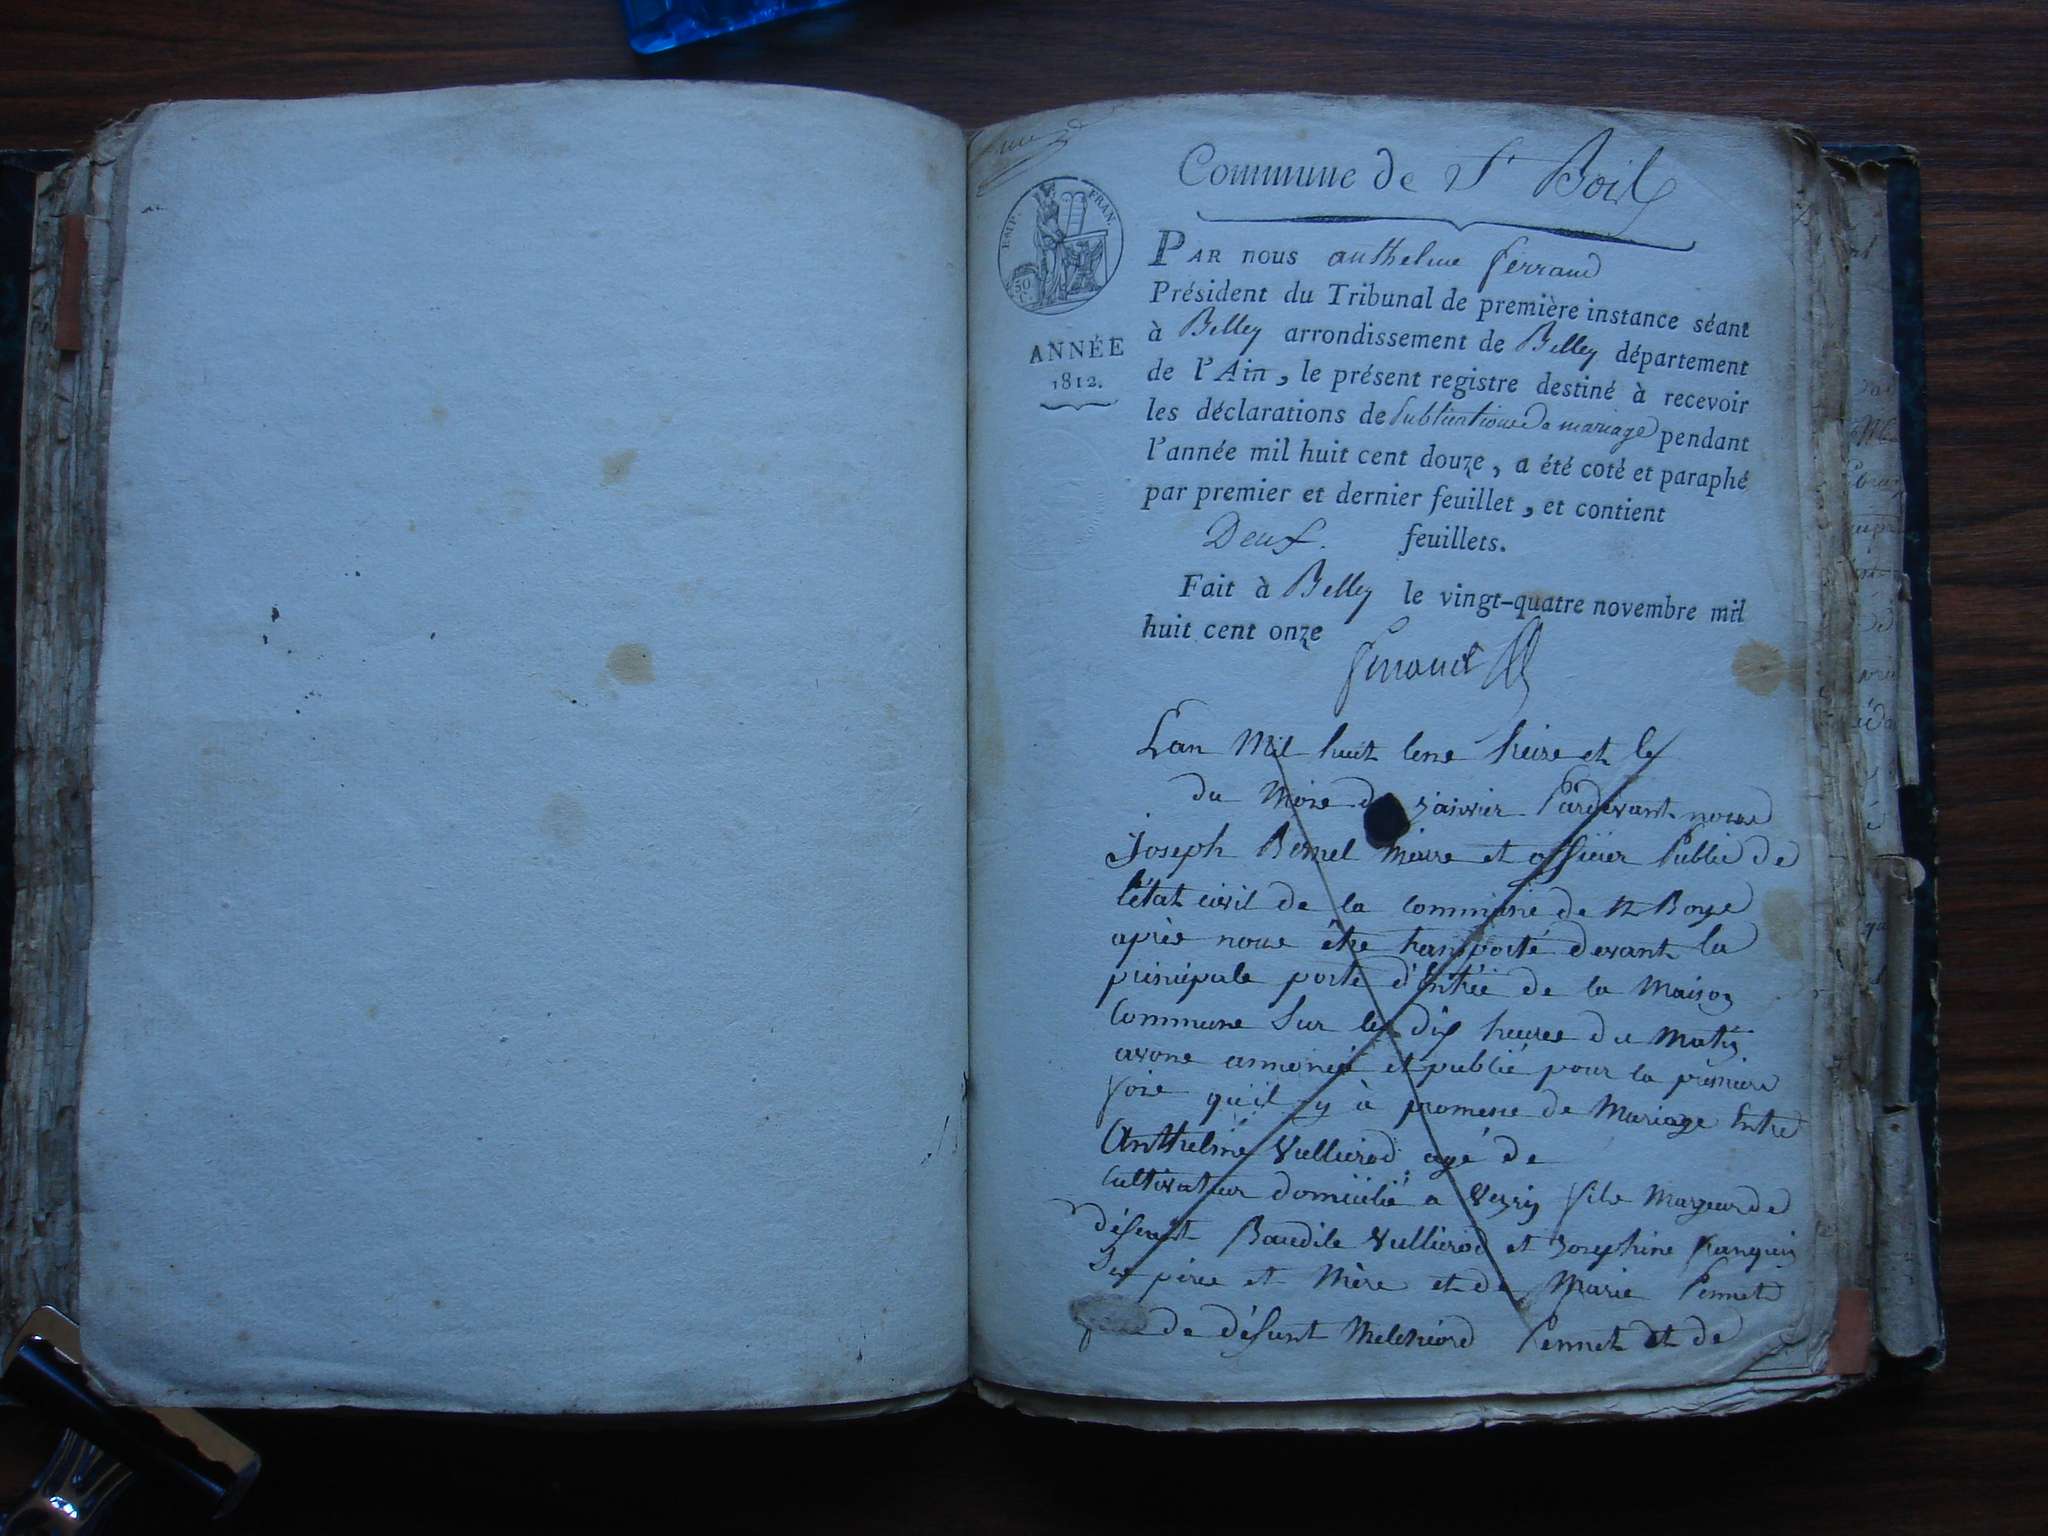 Commune de St Boil
EMP. FRAN.
50 c.
ANNÉE
1812.
PAR NOUS anthelme ferrand
Président du Tribunal de première instance séant
à Belley arrondissement de Belley département
de l'Ain, le présent registre destiné à recevoir
les déclarations de Publications de mariage pendant
l'année mil huit cent douze, a été coté et paraphé
par premier et dernier feuillet, et contient
Deux. feuillets.
Fait à Belley le vingt-quatre novembre mil
huit cent onze
ferrand
Lan Mil huit Cent et le
du Mois de janvier Pardevant nous
Joseph mere et officier Public de
l'état civil de la commune de St Boys
après nous être transporté devant la
principale porte d'Entrée de la Maison
Commune Sur les dix heures du Matin
avons annoncé et publié pour la première
fois qu'il y à promesse de Mariage Entre
Anthelme Vullierod agé de
Cultivateur domicilié a fils Majeur de
défunt Baudile Vullierod et Josephine
Ses père et Mère et de Marie Pennet
de défunt Melchiord Pennet et de